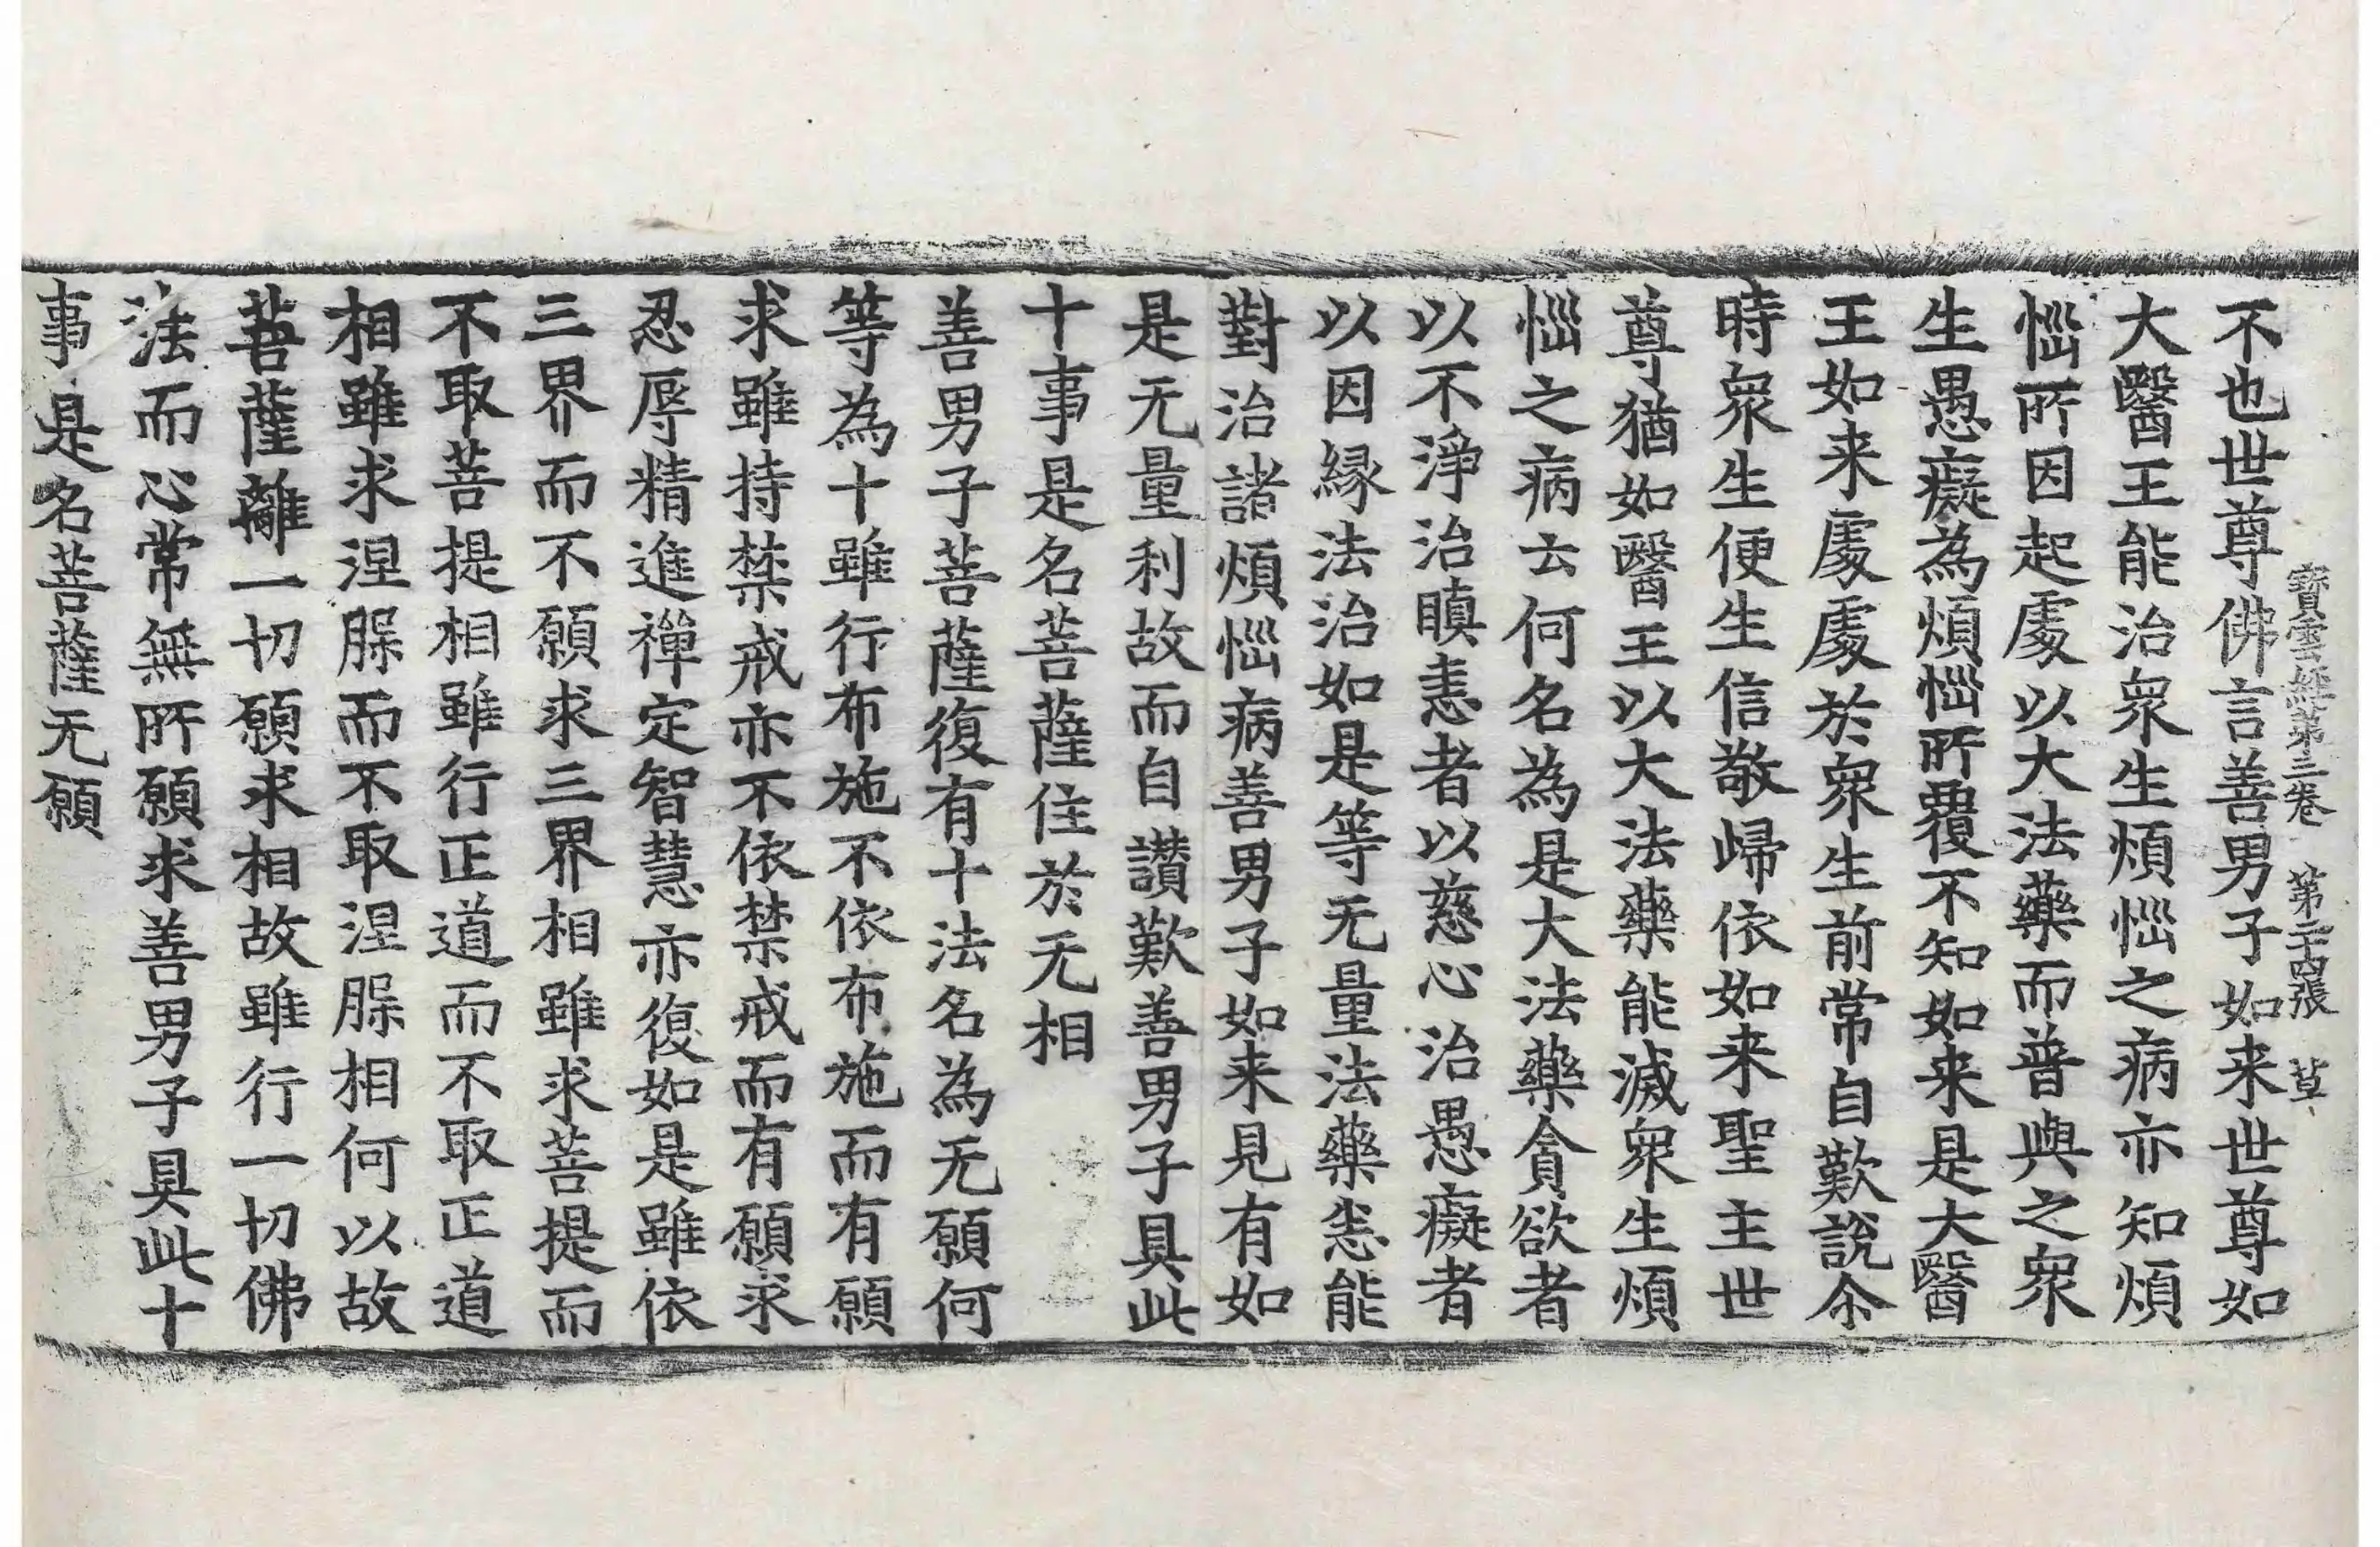 寶雲經第三卷　第二十四張　草
不也世尊佛言善男子如来世尊如
大醫王能治衆生煩惱之病亦知煩
惱所因起處以大法藥而普與之衆
生愚癡為煩惱所覆不知如来是大醫
王如来處處於衆生前常自歎說尒
時衆生便生信敬歸依如来聖主世
尊猶如醫王以大法藥能滅衆生煩
惱之病云何名為是大法藥貪欲者
以不淨治瞋恚者以慈心治愚癡者
以因緣法治如是等无量法藥悉能
對治諸煩惱病善男子如来見有如
是无量利故而自讃歎善男子具此
十事是名菩薩住於无相
善男子菩薩復有十法名為无願何
等為十雖行布施不依布施而有願
求雖持禁戒亦不依禁戒而有願求
忍辱精進禪定智慧亦復如是雖依
三界而不願求三界相雖求菩提而
不取菩提相雖行正道而不取正道
相雖求涅槃而不取涅槃相何以故
菩薩離一切願求相故雖行一切佛
法而心常無所願求善男子具此十
事是名菩薩无願